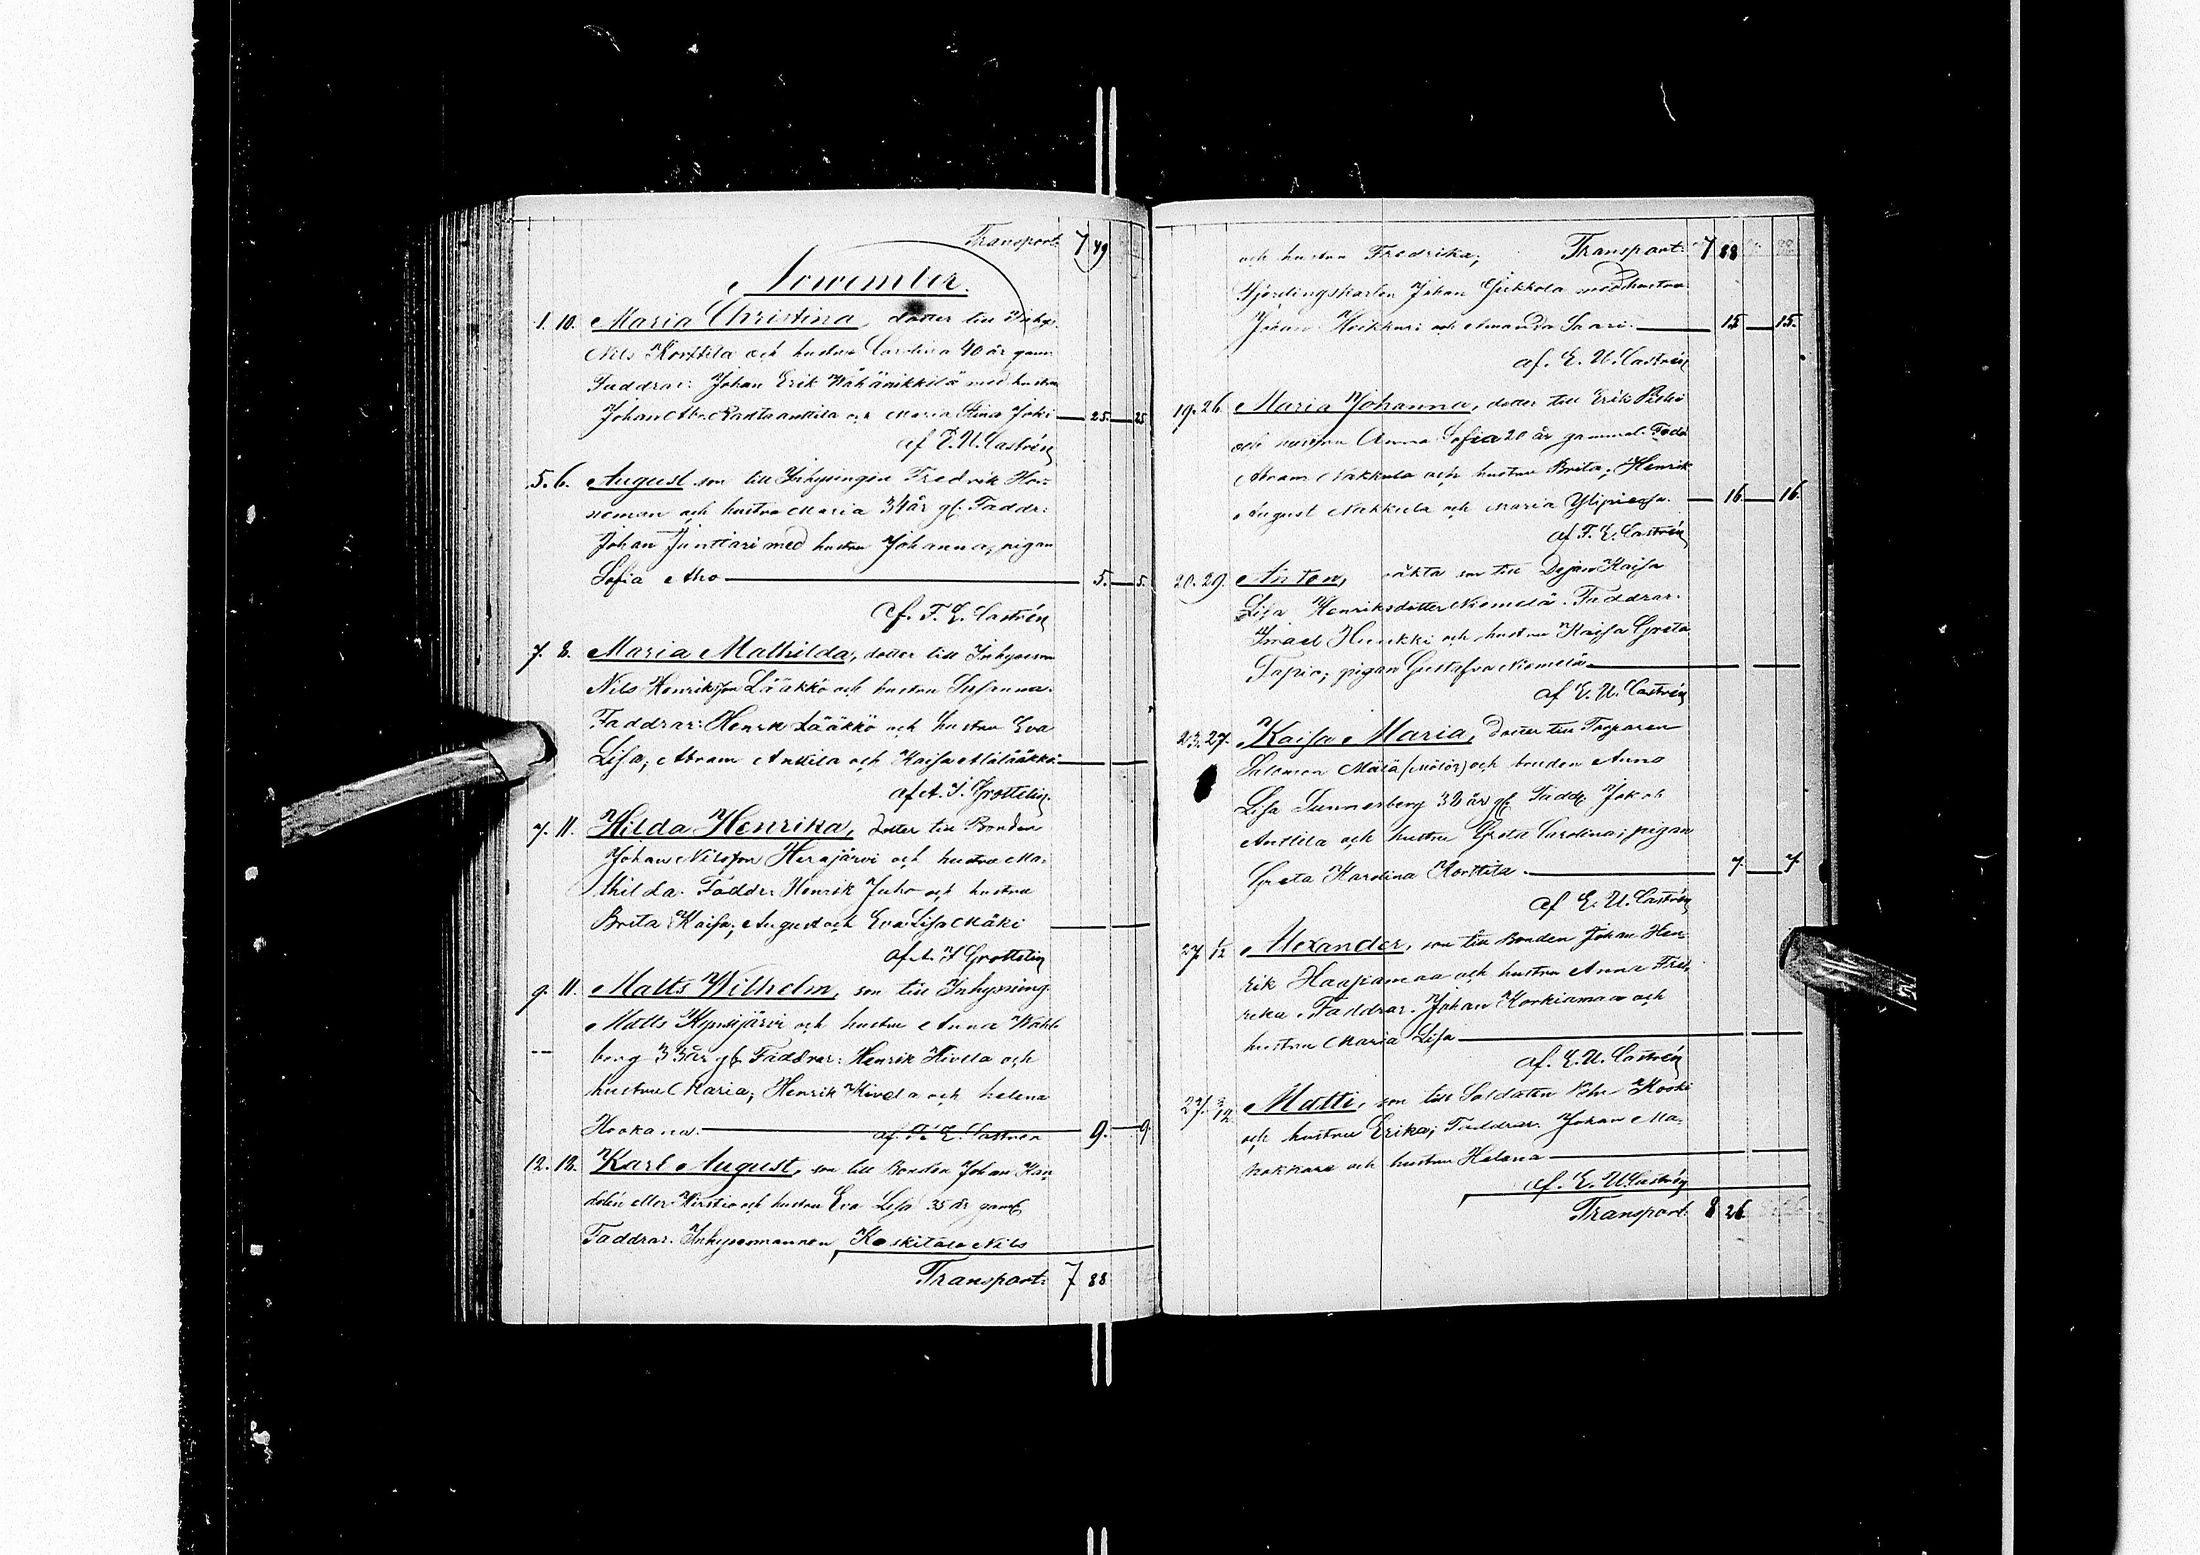 Transport: 7 49
November.
1. 10. Maria Christina, dotter till Inhys.
Nils Korttila och hustru Carolina 40 år gam
Faddrar: Johan Erik Wähänikkilä med hustru
Johan Abr. Rautaanttila och Maria Stina Joki — 25. — 25
af E. U. Castrén
5. 6. August son till Inhysingen Fredrik Hon-
neman och hustru Maria 34 år gl. Faddr:
Johan Junttari med hustru Johanna, pigan
Sofia Aho — 5. — 5.
af. F. E. Castrén
7. 8. Maria Mathilda, dotter till Inhysesm
Nils Henriksson Lääkkö och hustru Susanna.
Faddrar: Henrik Lääkkö och hustru Eva
Lisa; Abram Anttila och Kaisa Alalääkkö. —
af A. I. Grottelin.
7. 11. Hilda Henrika, dotter till Bonden
Johan Nilsson Herajärvi och hustru Ma-
thilda. Faddr: Henrik Juho och hustru
Brita Kaisa; August och Eva Lisa Mäki —
af A. I Grottelin
9. 11. Matts Wilhelm, son till Inhysning.
Matts och hustru Anna Wahl-
berg 33 år gl. Faddrar: Henrik Hivela och
hustru Maria; Henrik Kivela och Helena
Hookana. — af. F. E. Castren 9. — 9.
12. 18. Karl August, son till Bonden Johan Kan
dolin eller Kirstio och hustru Eva Lisa 35 år gaml
Faddrar. Inhysesmannen Koskitalo Nils
Transport: 7 88
och hustru Fredrika; Transport: 7 88
Fjerdingskarlen Johan Jukkola med hustru
Johan Heikkuri och Amanda Saari. — 15 — 15.
af. E. U. Castrén
19. 26. Maria Johanna, dotter till Erik Pietiö
och hustru Anna Sofia 20 år gammal. Fadd
Abram Nakkula och hustru Brita; Henrik
August Nakkula och Maria Ylipiessa. — 16. — 16.
af F. E. Castrén
20. 29. Anton, oäkta son till Dejan Kaisa
Lisa Henriksdotter Niemelä. Faddrar.
Israel Hunkki och hustru Kaisa Greta
Tapio; pigan Gustafva Niemelä —
af E. U. Castrén
23. 27. Kaisa Maria, dotter till Torparen
Salomon Mäiä och bruden Anna
Lisa Sunnerberg 38 år gl. Faddr. Jakob
Anttila och hustru Greta Carolina; pigan
Greta Karolina Korttila. — 7. — 7.
af E. U. Castrén
27 1/12 Alexander, son till Bonden Johan Hen-
rik Haapamaa och hustru Anna Fred-
rika. Faddrar. Johan Korkiamaa och
hustru Maria Lisa —
af. E. U. Castrén
27. 3/12 Matti, son till Soldaten Koski
och hustru Erika; Faddrar. Johan Ma-
kokkare och hustru Helena —
af. E. U Castrén
Transport: 8 26